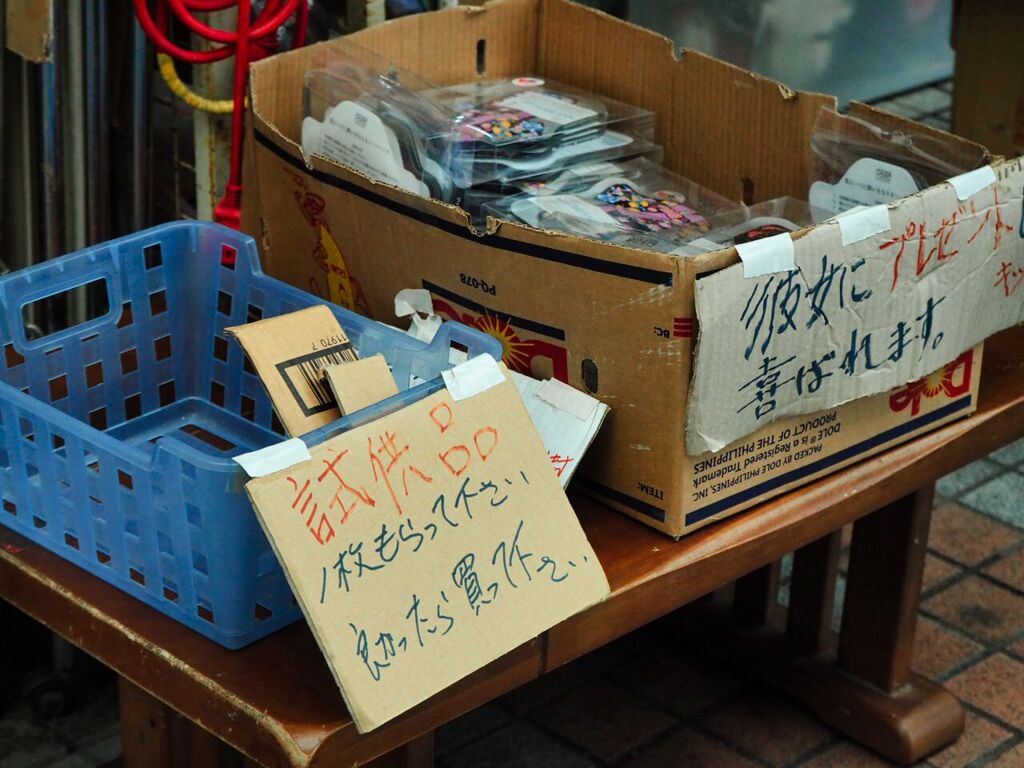 彼女に プレゼント
喜ばれます。
試供品
1枚もらって下さい
良かったら買って下さい
PQ-078
11970 7
BC:
ITEM:
PACKED BY DOLE PHILIPPINES, INC.
DOLE ® is a Registered Trademark
PRODUCT OF THE PHILIPPINES
Dole